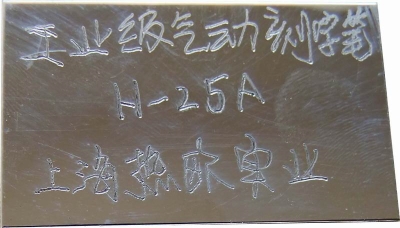 工业级气动刻字笔
H-25A
上海热实业